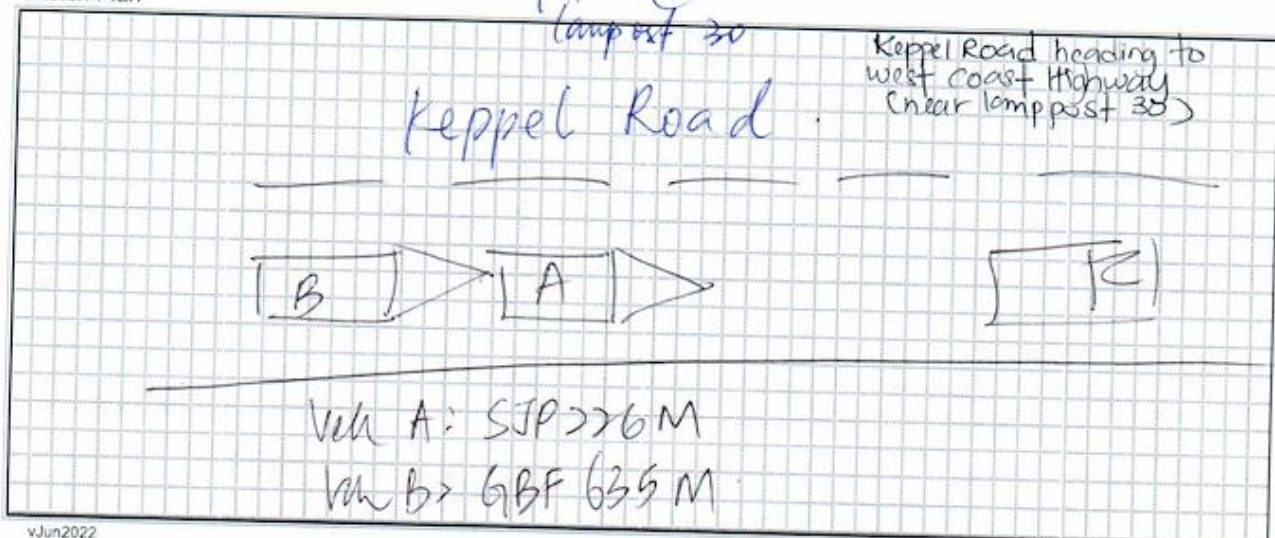 lamppost 30
Keppel Road heading to
west coast Highway
(near lamppost 30)
Keppel Road.
B
A
C
Veh A: SJP226M
Veh B: GBF 635 M
vJun2022